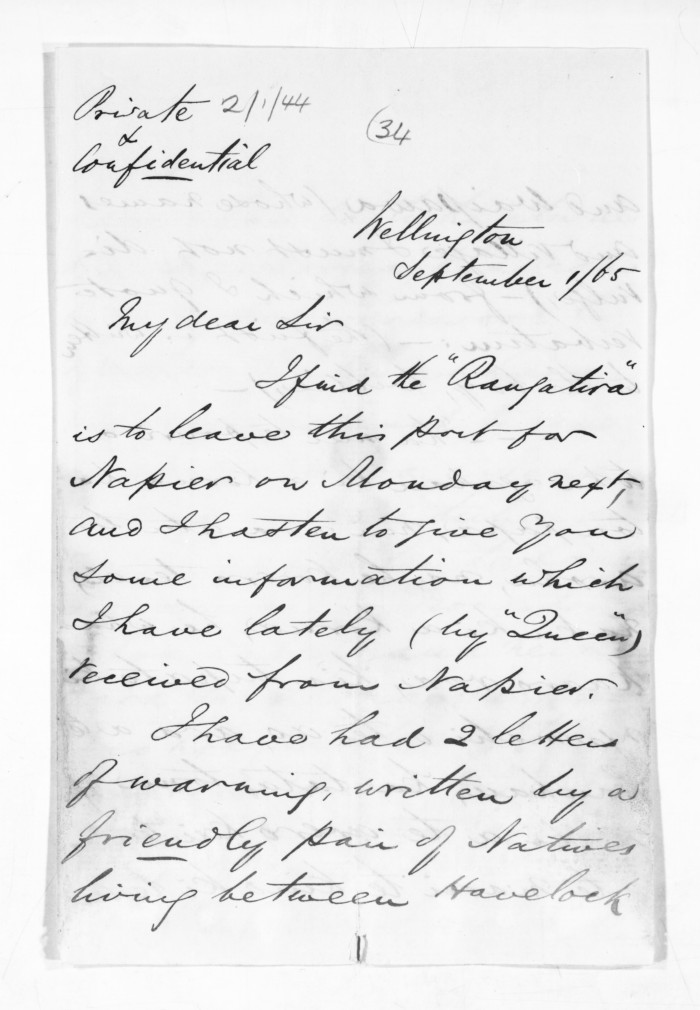 Private 2/1/44
(34
&
Confidential
Wellington
September 1/65
My dear Sir
I find the "Rangatira"
is to leave this port for
Napier on Monday next,
and I hasten to give you
some information which
I have lately (by "Queen")
received from Napier.
I have had 2 letters
of warning, written by a
friendly pair of Natives
living between Havelock